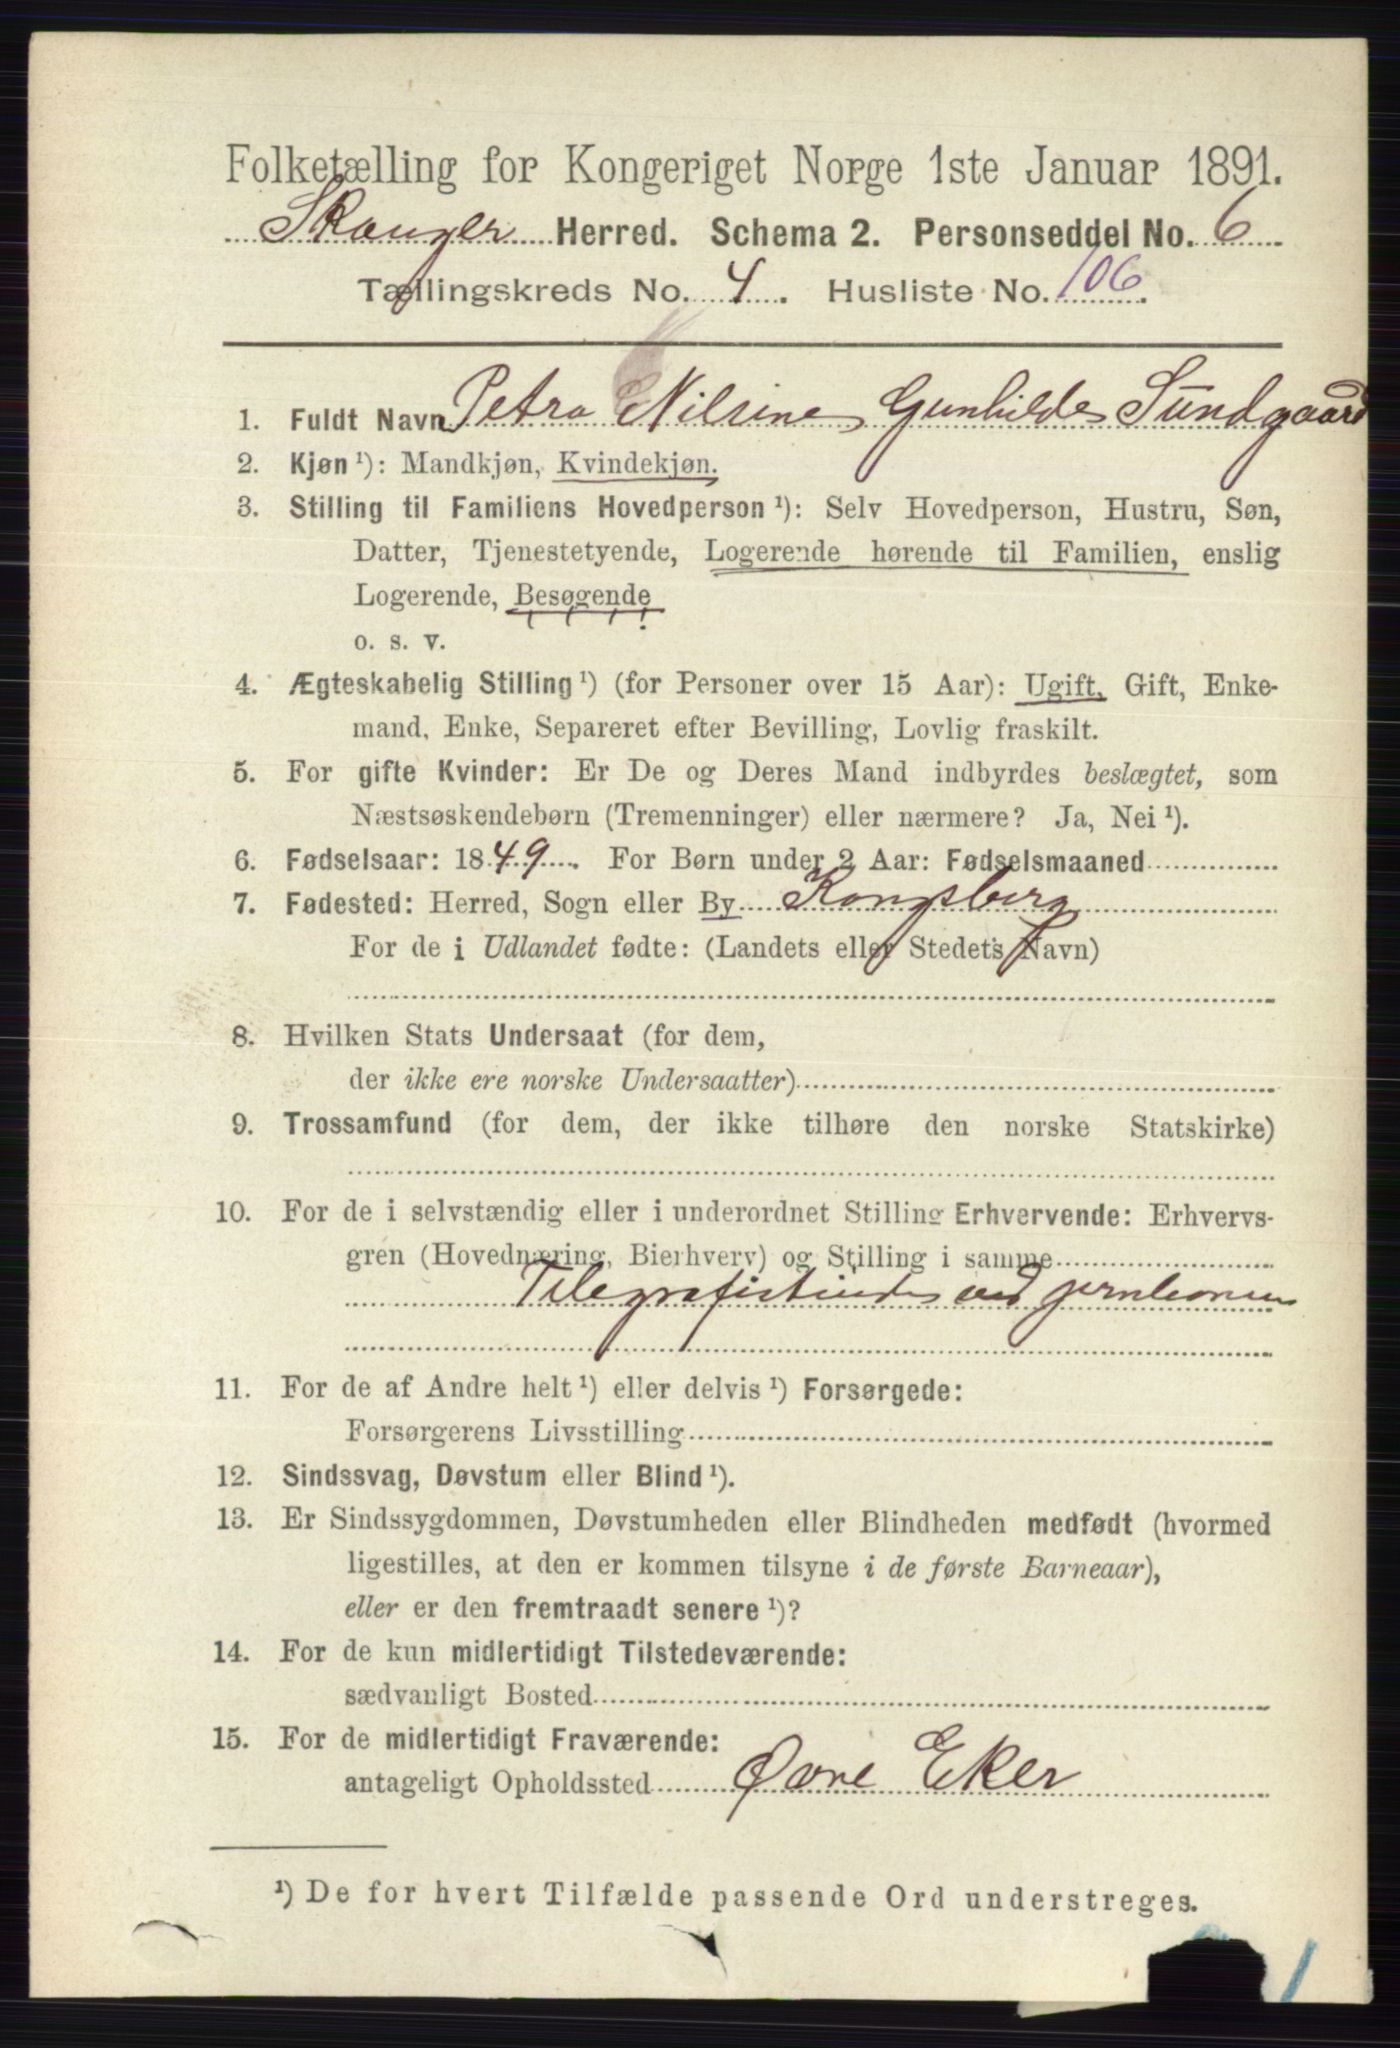 Folketælling for Kongeriget Norge 1ste Januar 1891.
Skouger Herred. Schema 2. Personseddel No. 6
Tællingskreds No. 4. Husliste No. 106.
1. Fuldt Navn Petra Nilsine Gunhilde Sundgaard
2. Kjøn ¹): Mandkjøn, Kvindekjøn.
3. Stilling til Familiens Hovedperson ¹): Selv Hovedperson, Hustru, Søn,
Datter, Tjenestetyende, Logerende hørende til Familien, enslig
Logerende, Besøgende
o. s. v.
4. Ægteskabelig Stilling ¹) (for Personer over 15 Aar): Ugift, Gift, Enke-
mand, Enke, Separeret efter Bevilling, Lovlig fraskilt.
5. For gifte Kvinder: Er De og Deres Mand indbyrdes beslægtet, som
Næstsøskendebørn (Tremenninger) eller nærmere? Ja, Nei ¹).
6. Fødselsaar: 1849. For Børn under 2 Aar: Fødselsmaaned
7. Fødested: Herred, Sogn eller By Kongsberg
For de i Udlandet fødte: (Landets eller Stedets Navn)
8. Hvilken Stats Undersaat (for dem,
der ikke ere norske Undersaatter)
9. Trossamfund (for dem, der ikke tilhøre den norske Statskirke)
10. For de i selvstændig eller i underordnet Stilling Erhvervende: Erhvervs-
gren (Hovednæring, Bierhverv) og Stilling i samme
Telegrafistinde ved jernbanen
11. For de af Andre helt ¹) eller delvis ¹) Forsørgede:
Forsørgerens Livsstilling
12. Sindssvag, Døvstum eller Blind ¹).
13. Er Sindssygdommen, Døvstumheden eller Blindheden medfødt (hvormed
ligestilles, at den er kommen tilsyne i de første Barneaar),
eller er den fremtraadt senere ¹)?
14. For de kun midlertidigt Tilstedeværende:
sædvanligt Bosted
15. For de midlertidigt Fraværende:
antageligt Opholdssted Øvre Eker
¹) De for hvert Tilfælde passende Ord understreges.